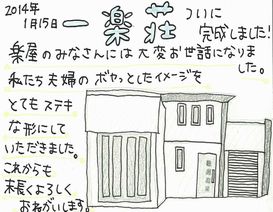 2014年
1月15日
一楽荘
ついに
完成しました!
楽屋のみなさんには大変お世話になりました。
私たち夫婦のボヤッとしたイメージを
とてもステキ
な形にして
いただきました。
これからも
末長くよろしく
おねがいします。